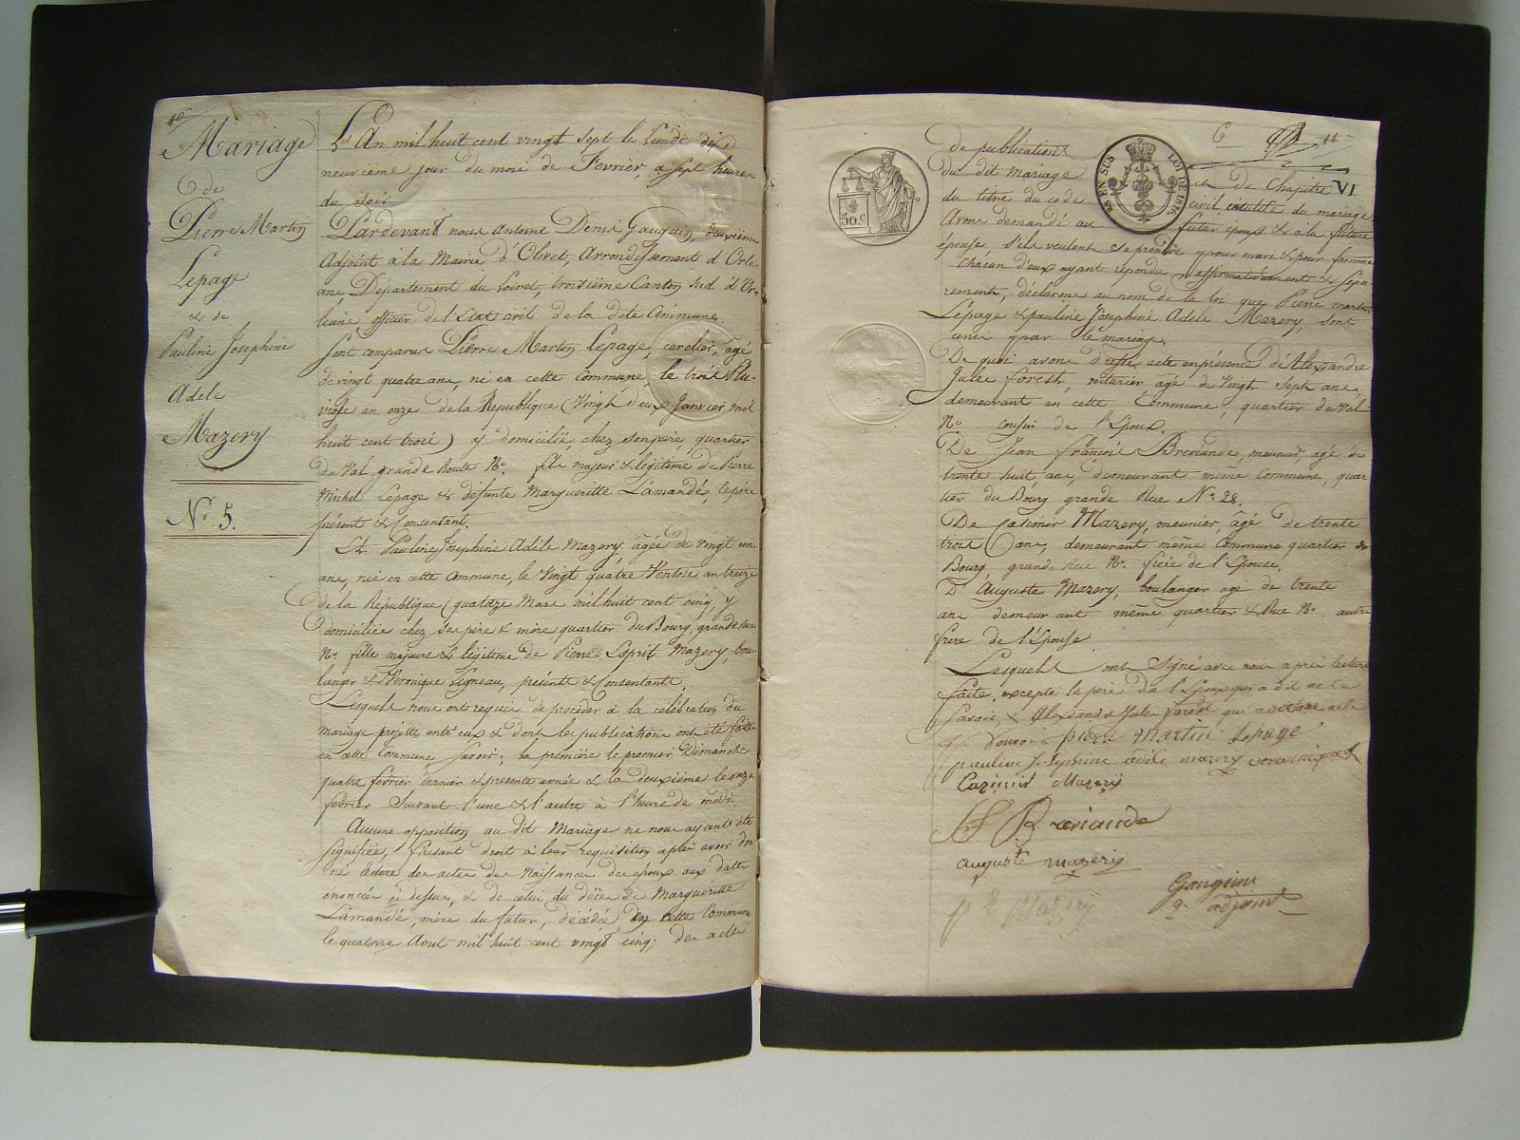 Mariage
de
Pierre Martin
Lepage
& de
Pauline Josephine
Adele
Mazery
No. 5.
L'An mil huit cent vingt sept le lundi dix
neuvieme jour du mois de Fevrier, a sept heures
du soir
Pardevant nous Antoine Denis Gaugain, deuxième
Adjoint à la Mairie d'Olivet, Arrondissement d'Orle-
ans, Departement du Loiret, troisième Canton Sud d'Or-
leans officier de l'Etat civil de la dite Commune,
Sont comparus Pierre Martin Lepage, âgé
de vingt quatre ans, né en cette Commune, le trois Plu-
viose an onze de la Republique (Vingt deux Janvier mil
huit cent trois) y domicilié chez son père, quartier
du Val grande Route No. fils majeur & légitime de Pierre
Michel Lepage & defunte Margueritte Lamandé, le père
présent & Consentant.
Et Pauline Josephine Adèle Mazery âgée de vingt un
ans, née en cette Commune, le Vingt quatre Ventose an treize
de la République (quatorze Mars mil huit cent cinq) y
domiciliée chez ses père & mère quartier du Bourg, grande rue
No. fille majeure & légitime de Pierre Esprit Mazery, bou-
langer & Veronique Pigneau, présents & Consentants.
Lesquels nous ont requis de procéder à la celébration du
mariage projetté entr'eux & dont les publications ont été faites
en cette Commune, savoir; la première le premier Dimanche
quatre fevrier dernier & presente année & la deuxième le onze
fevrier Suivant l'une & l'autre à l'heure de midi.
Aucune opposition au dit Mariage ne nous ayant été
Signifiée, faisant droit à leur requisition après avoir don-
né lecture des actes de Naissance des époux aux dattes
énoncées ci dessus, & de celui du décès de Margueritte
Lamandé, mère du futur, décédée en cette Commune
le quatorze Aout mil huit cent vingt cinq; des actes
de publications
du dit mariage
du titre du code
Avons demandé au
& de Chapitre VI
civil intitulé du mariage
futur epoux & a la future
épouse s'ils veulent se prendre pour mari & pour femme
chacun d'eux ayant répondu affirmativement & sépa-
rement, déclarons au nom de la loi que Pierre Martin
Lépage & pauline Josephine Adele Mazery, sont
unis par le mariage.
De quoi avons dressé acte en présence D'Alexandre
Jules Forest, voiturier agé de Vingt Sept ans
demeurant en cette Commune, quartier du Val
No. cousin de l'Epoux.
De Jean François Breniande, meunier, agé de
trente huit ans demeurant même Commune, quar
tier du Bourg grande Rue No. 28.
De Casimir Mazery, meunier, âgé de trente
trois ans, demeurant même Commune quartier du
Bourg, grande Rue No. frère de l'Epouse.
D'Auguste Mazery, boulanger agé de trente
ans demeurant même quartier & Rue No. autre
frere de l'Epouse
Lesquels ont Signé avec nous après lecture
faite, excepté le père de l'Epoux qui a dit ne le
savoir, & Alexandre Jules Forest qui a
pierre Martin Lepage
pauline Josephine adele mazery
Cazimir Mazery
Breniande
auguste mazery
Gaugain
adjoint
P E Mazery
50.c
EN SUS
LOI DE 1816